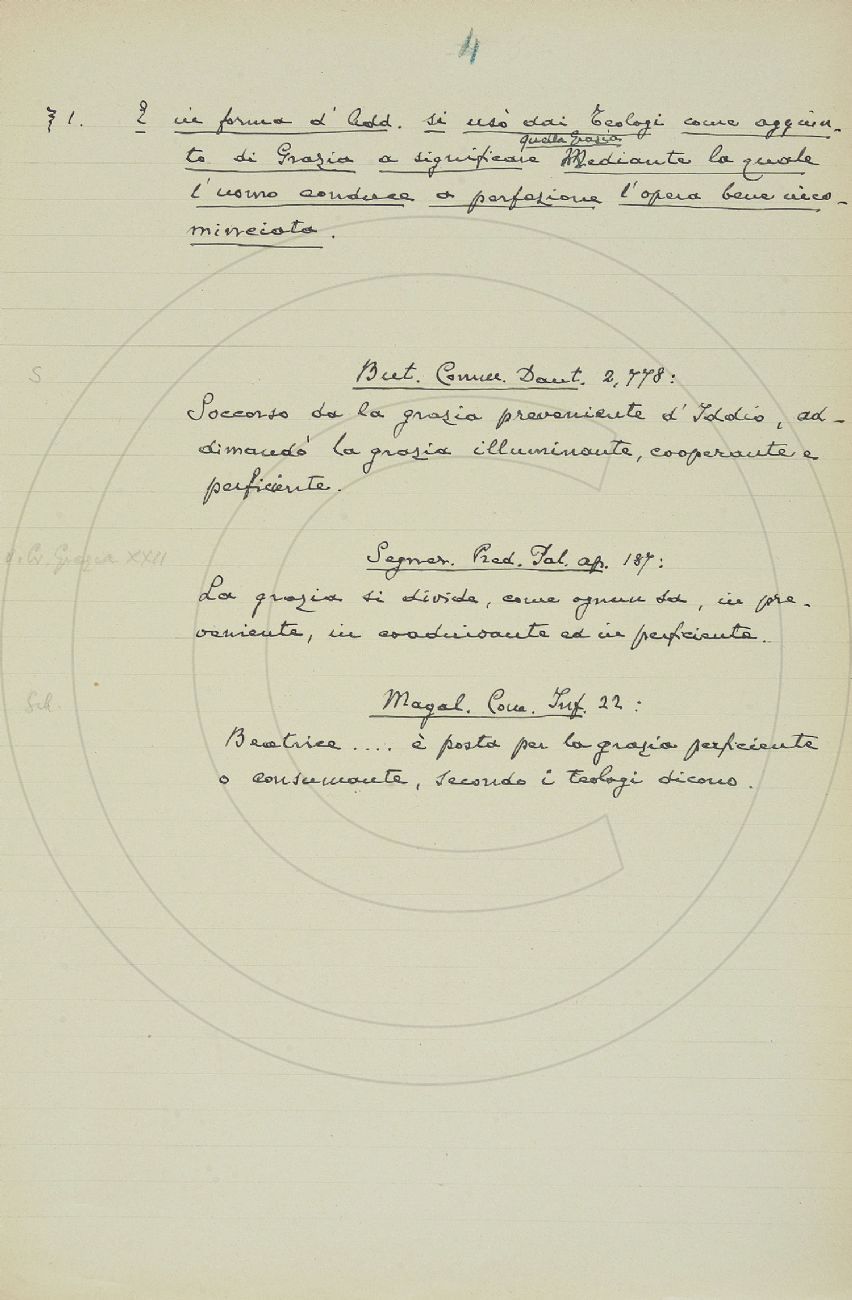 4
§ 1. E in forma d'Add. si usò dai Teologi come aggiun-
quella grazia
to di Grazia a significare Mediante la quale
l'uomo conduce a perfezione l'opera bene inco-
minciata.
S
But. Comm. Dant. 2,778:
Soccorso da la grazia preveniente d'Iddio, ad-
dimandò la grazia illuminante, cooperante e
perficiente.
Grazia XXII
Segner. Pred. Pal. ap. 187:
La grazia si divide, come ognun sa, in pre-
veniente, in coadiuvante ed in perficiente.
Magal. Com. Inf. 22:
Beatrice .... è posta per la grazia perficiente
o consumante, secondo i teologi dicono.